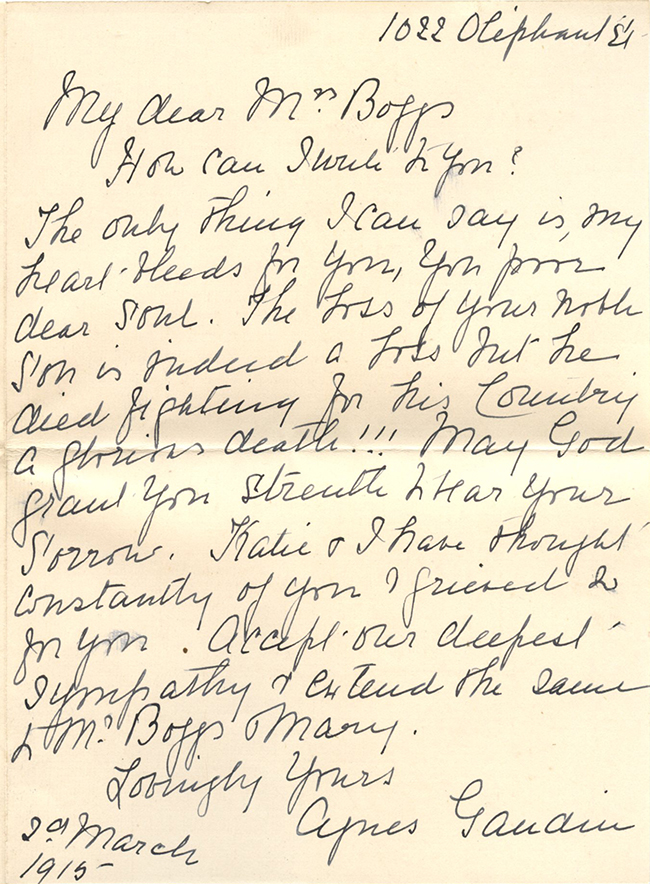 1022 Oliphant St
My dear Mrs Boggs
How can I write to you?
The only thing I can say is, my
heart bleeds for you, you poor
dear soul. The loss of your noble
Son is indeed a loss but he
died fighting for his Country
a glorious death!!! May God
grant you strenth to bear your
Sorrow. Katie & I have thought
constantly of you & grieved so
for you. Accept our deepest
sympathy & extend the same
to Mr Boggs & Mary.
Lovingly Yours
Agnes Gaudin
2nd March
1915